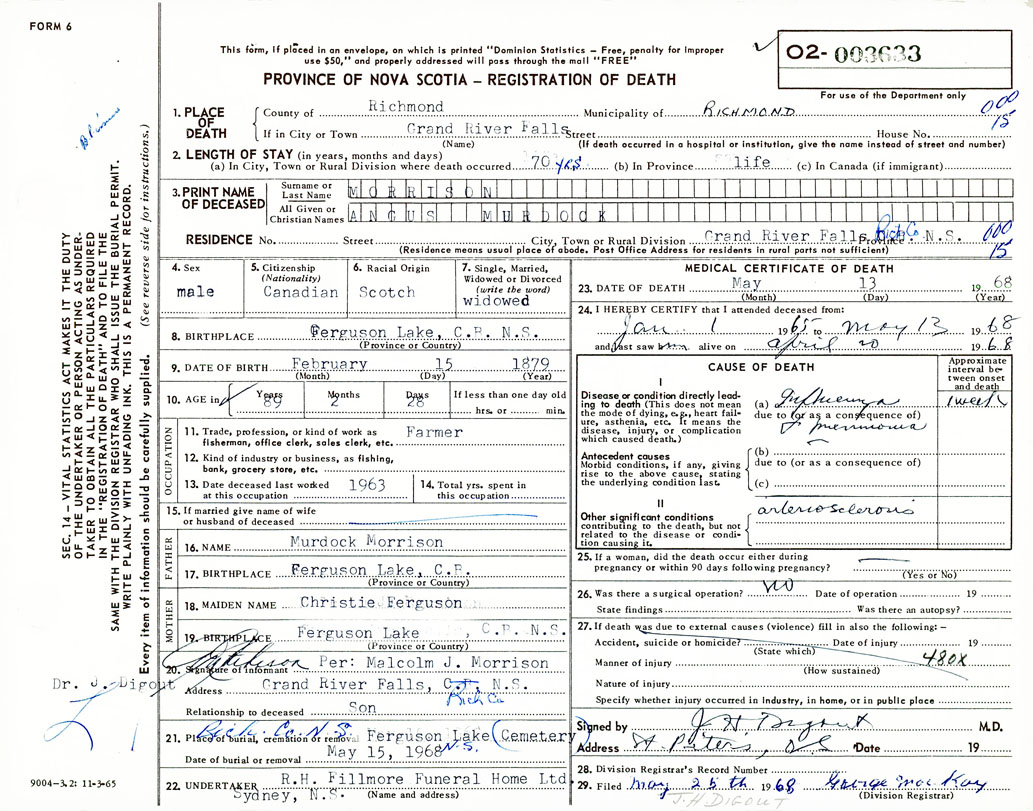 FORM 6
This form, if placed in an envelope, on which is printed "Dominion Statistics – Free, penalty for improper
use $50," and properly addressed will pass through the mail "FREE"
PROVINCE OF NOVA SCOTIA – REGISTRATION OF DEATH
O2- 003633
For use of the Department only
000
15
SEC. 14 – VITAL STATISTICS ACT MAKES IT THE DUTY
OF THE UNDERTAKER OR PERSON ACTING AS UNDER-
TAKER TO OBTAIN ALL THE PARTICULARS REQUIRED
IN THE "REGISTRATION OF DEATH" AND TO FILE THE
SAME WITH THE DIVISION REGISTRAR WHO SHALL ISSUE THE BURIAL PERMIT.
WRITE PLAINLY WITH UNFADING INK. THIS IS A PERMANENT RECORD.
Every item of information should be carefully supplied. (See reverse side for instructions.)
1. PLACE OF DEATH County of Richmond Municipality of RICHMOND
If in City or Town Grand River Falls Street House No.
(Name) (If death occurred in a hospital or institution, give the name instead of street and number)
2. LENGTH OF STAY (in years, months and days)
(a) In City, Town or Rural Division where death occurred 70 yrs (b) In Province life (c) In Canada (if immigrant)
3. PRINT NAME OF DECEASED Surname or Last Name MORRISON
All Given or Christian Names ANGUS MURDOCK
RESIDENCE No. Street City, Town or Rural Division Grand River Falls, Rich Co Province N.S. 000
(Residence means usual place of abode. Post Office Address for residents in rural parts not sufficient) 15
4. Sex male
5. Citizenship (Nationality) Canadian
6. Racial Origin Scotch
7. Single, Married, Widowed or Divorced (write the word) widowed
8. BIRTHPLACE Ferguson Lake, C.B. N.S.
(Province or Country)
9. DATE OF BIRTH February 15 1879
(Month) (Day) (Year)
10. AGE in Years 89 Months 2 Days 28 If less than one day old hrs. or min.
OCCUPATION
11. Trade, profession, or kind of work as fisherman, office clerk, sales clerk, etc. Farmer
12. Kind of industry or business, as fishing, bank, grocery store, etc.
13. Date deceased last worked at this occupation 1963
14. Total yrs. spent in this occupation
15. If married give name of wife or husband of deceased
FATHER
16. NAME Murdock Morrison
17. BIRTHPLACE Ferguson Lake, C.B.
(Province or Country)
MOTHER
18. MAIDEN NAME Christie Ferguson
19. BIRTHPLACE Ferguson Lake, C.B. N.S.
(Province or Country)
20. Signature of informant Per: Malcolm J. Morrison
Dr. J. Digout
Address Grand River Falls, C.B. N.S.
Rich Co
Relationship to deceased Son
Rich. Co. N.S.
21. Place of burial, cremation or removal Ferguson Lake (Cemetery)
N.S.
Date of burial or removal May 15, 1968
22. UNDERTAKER R.H. Fillmore Funeral Home Ltd.
Sydney, N.S. (Name and address)
9004-3.2: 11-3-65
MEDICAL CERTIFICATE OF DEATH
23. DATE OF DEATH May 13 19 68
(Month) (Day) (Year)
24. I HEREBY CERTIFY that I attended deceased from:
Jan 1 1965 to May 13 1968
and last saw him alive on April 20 1968
CAUSE OF DEATH
Approximate interval between onset and death
I
Disease or condition directly leading to death (This does not mean the mode of dying, e.g., heart failure, asthenia, etc. It means the disease, injury, or complication which caused death.)
(a) Influenza 1 week
due to (or as a consequence of)
pneumonia
Antecedent causes
Morbid conditions, if any, giving rise to the above cause, stating the underlying condition last.
(b)
due to (or as a consequence of)
(c)
II
Other significant conditions contributing to the death, but not related to the disease or condition causing it.
arteriosclerosis
25. If a woman, did the death occur either during
pregnancy or within 90 days following pregnancy?
(Yes or No)
26. Was there a surgical operation? No Date of operation 19
State findings Was there an autopsy?
27. If death was due to external causes (violence) fill in also the following: –
Accident, suicide or homicide? Date of injury 19
(State which)
Manner of injury 480X
(How sustained)
Nature of injury
Specify whether injury occurred in industry, in home, or in public place
Signed by J H Digout M.D.
Address St Peter's, Date 19
28. Division Registrar's Record Number
29. Filed May 25th 1968 George Mac Kay
(Division Registrar)
J.H DIGOUT